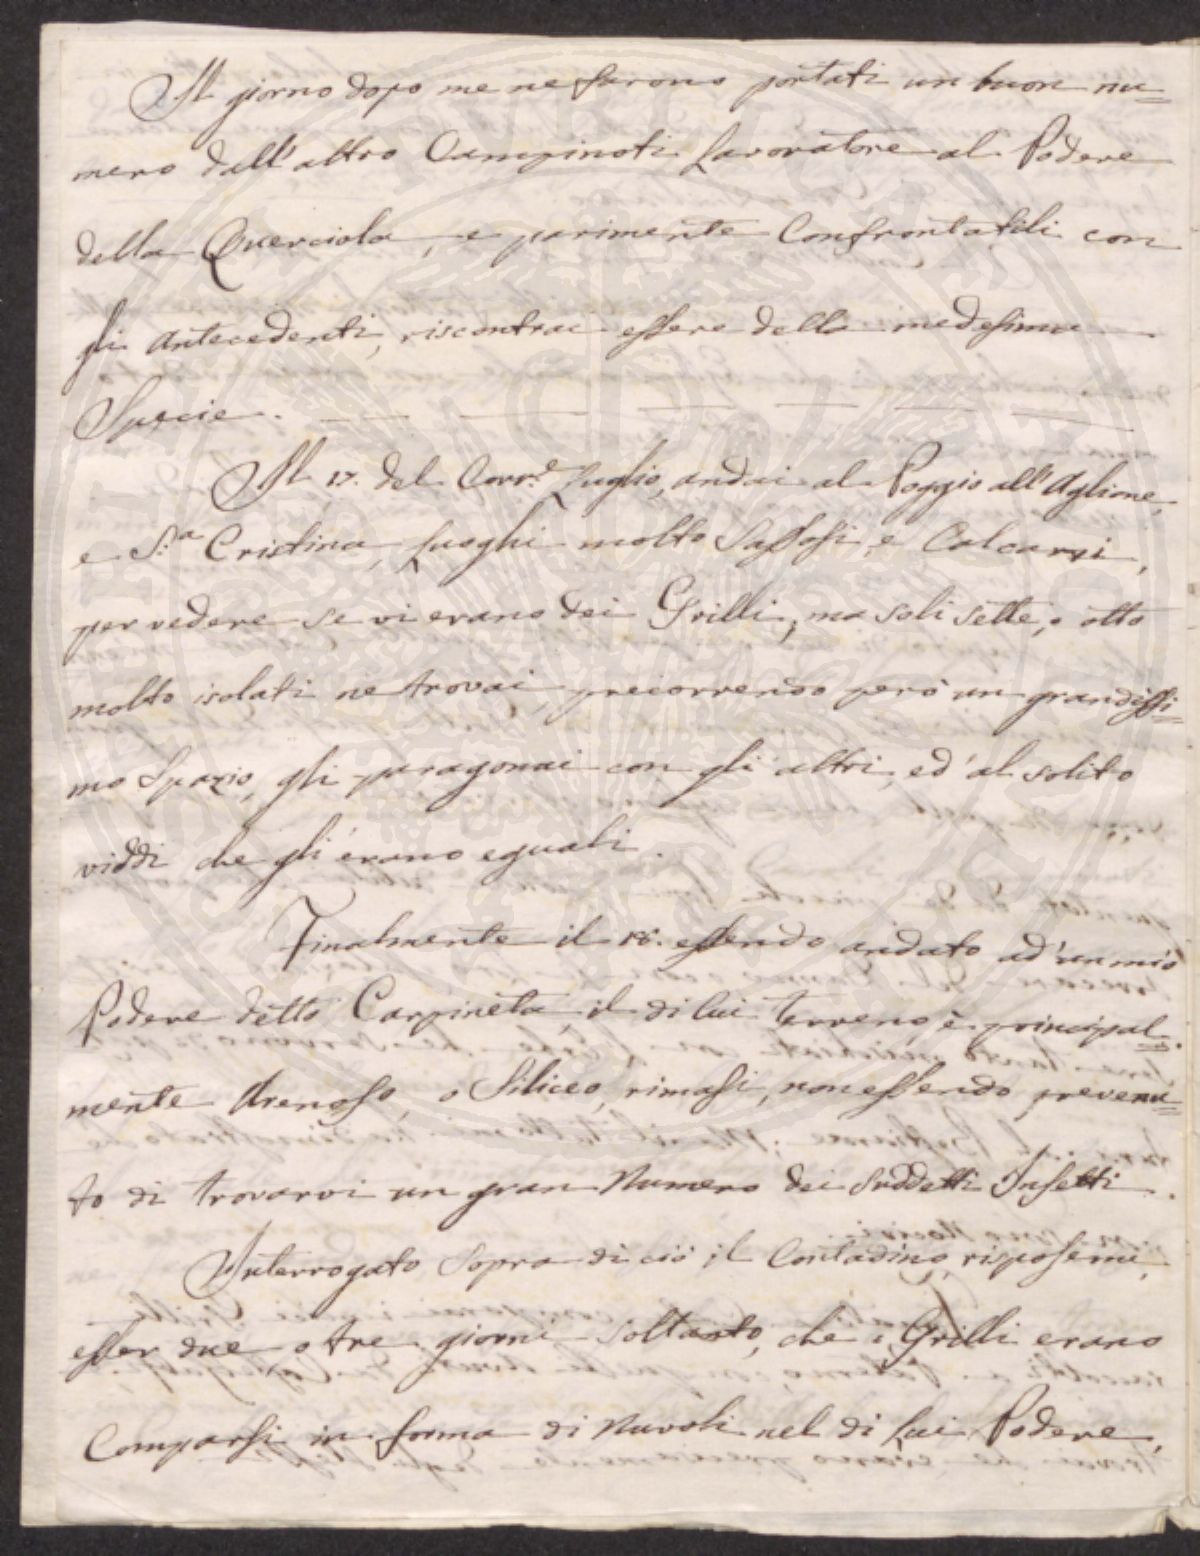 Il giorno dopo me ne furono portati un buon nu=
mero dall'altro Campinoti Lavoratore al Podere
della Querciola, e parimente Confrontatili con
gli antecedenti, riscontrai essere della medesima
Specie.
Il 17. del Corr.e Luglio, andai al Poggio all'Aglione,
e S.a Cristina, Luoghi molto Sassosi, e Calcarei,
per vedere se vi erano dei Grilli, ma soli sette, o otto
molto isolati ne trovai, precorrendo però un grandissi=
mo Spazio, gli paragonai con gli altri, ed'al solito
viddi che gli erano eguali.
Finalmente il 18. essendo andato ad'un mio
Podere detto Carpineta, il di lui terreno è principal=
mente Arenoso, o Siliceo, rimasi, non essendo prevenu=
to di trovarvi un gran Numero dei suddetti Insetti.
Interrogato sopra di ciò il Contadino, risposemi,
esser due, o tre giorni soltanto, che i Grilli erano
Comparsi in forma di Nuvoli nel di Lui Podere,